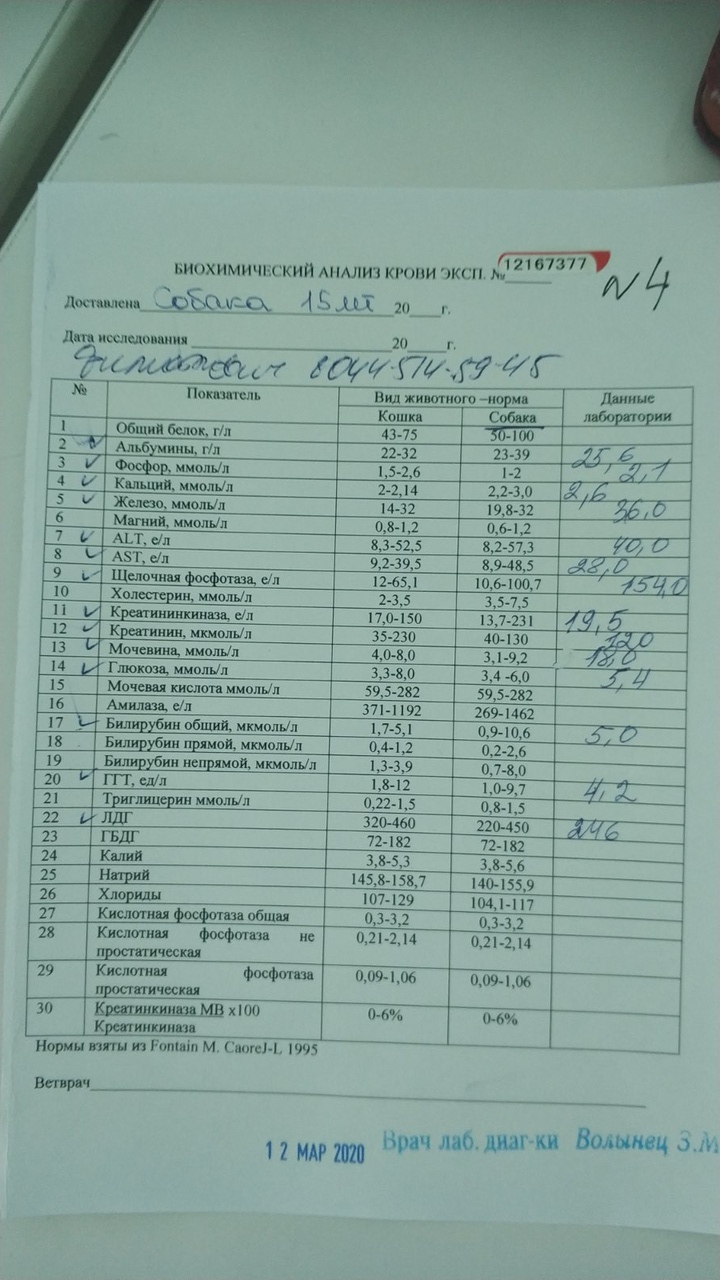 БИОХИМИЧЕСКИЙ АНАЛИЗ КРОВИ ЭКСП. № 12167377
N4
Доставлена Собака 15 лет 20 г.
Дата исследования 20 г.
8044-514-59-45
№ Показатель Вид животного –норма Данные лаборатории
Кошка Собака
1 Общий белок, г/л 43-75 50-100
2 Альбумины, г/л 22-32 23-39 25,6
3 Фосфор, ммоль/л 1,5-2,6 1-2 2,1
4 Кальций, ммоль/л 2-2,14 2,2-3,0 2,6
5 Железо, ммоль/л 14-32 19,8-32 36,0
6 Магний, ммоль/л 0,8-1,2 0,6-1,2
7 ALT, е/л 8,3-52,5 8,2-57,3 40,0
8 AST, е/л 9,2-39,5 8,9-48,5 28,0
9 Щелочная фосфотаза, е/л 12-65,1 10,6-100,7 154,0
10 Холестерин, ммоль/л 2-3,5 3,5-7,5
11 Креатининкиназа, е/л 17,0-150 13,7-231 19,5
12 Креатинин, мкмоль/л 35-230 40-130 120
13 Мочевина, ммоль/л 4,0-8,0 3,1-9,2 18,0
14 Глюкоза, ммоль/л 3,3-8,0 3,4 -6,0 5,4
15 Мочевая кислота ммоль/л 59,5-282 59,5-282
16 Амилаза, е/л 371-1192 269-1462
17 Билирубин общий, мкмоль/л 1,7-5,1 0,9-10,6 5,0
18 Билирубин прямой, мкмоль/л 0,4-1,2 0,2-2,6
19 Билирубин непрямой, мкмоль/л 1,3-3,9 0,7-8,0
20 ГГТ, ед/л 1,8-12 1,0-9,7 4,2
21 Триглицерин ммоль/л 0,22-1,5 0,8-1,5
22 ЛДГ 320-460 220-450 246
23 ГБДГ 72-182 72-182
24 Калий 3,8-5,3 3,8-5,6
25 Натрий 145,8-158,7 140-155,9
26 Хлориды 107-129 104,1-117
27 Кислотная фосфотаза общая 0,3-3,2 0,3-3,2
28 Кислотная фосфотаза не 0,21-2,14 0,21-2,14
простатическая
29 Кислотная фосфотаза 0,09-1,06 0,09-1,06
простатическая
30 Креатинкиназа МВ х100 0-6% 0-6%
Креатинкиназа
Нормы взяты из Fontain M. CaoreJ-L 1995
Ветврач
12 МАР 2020 Врач лаб. диаг-ки Волынец З.М